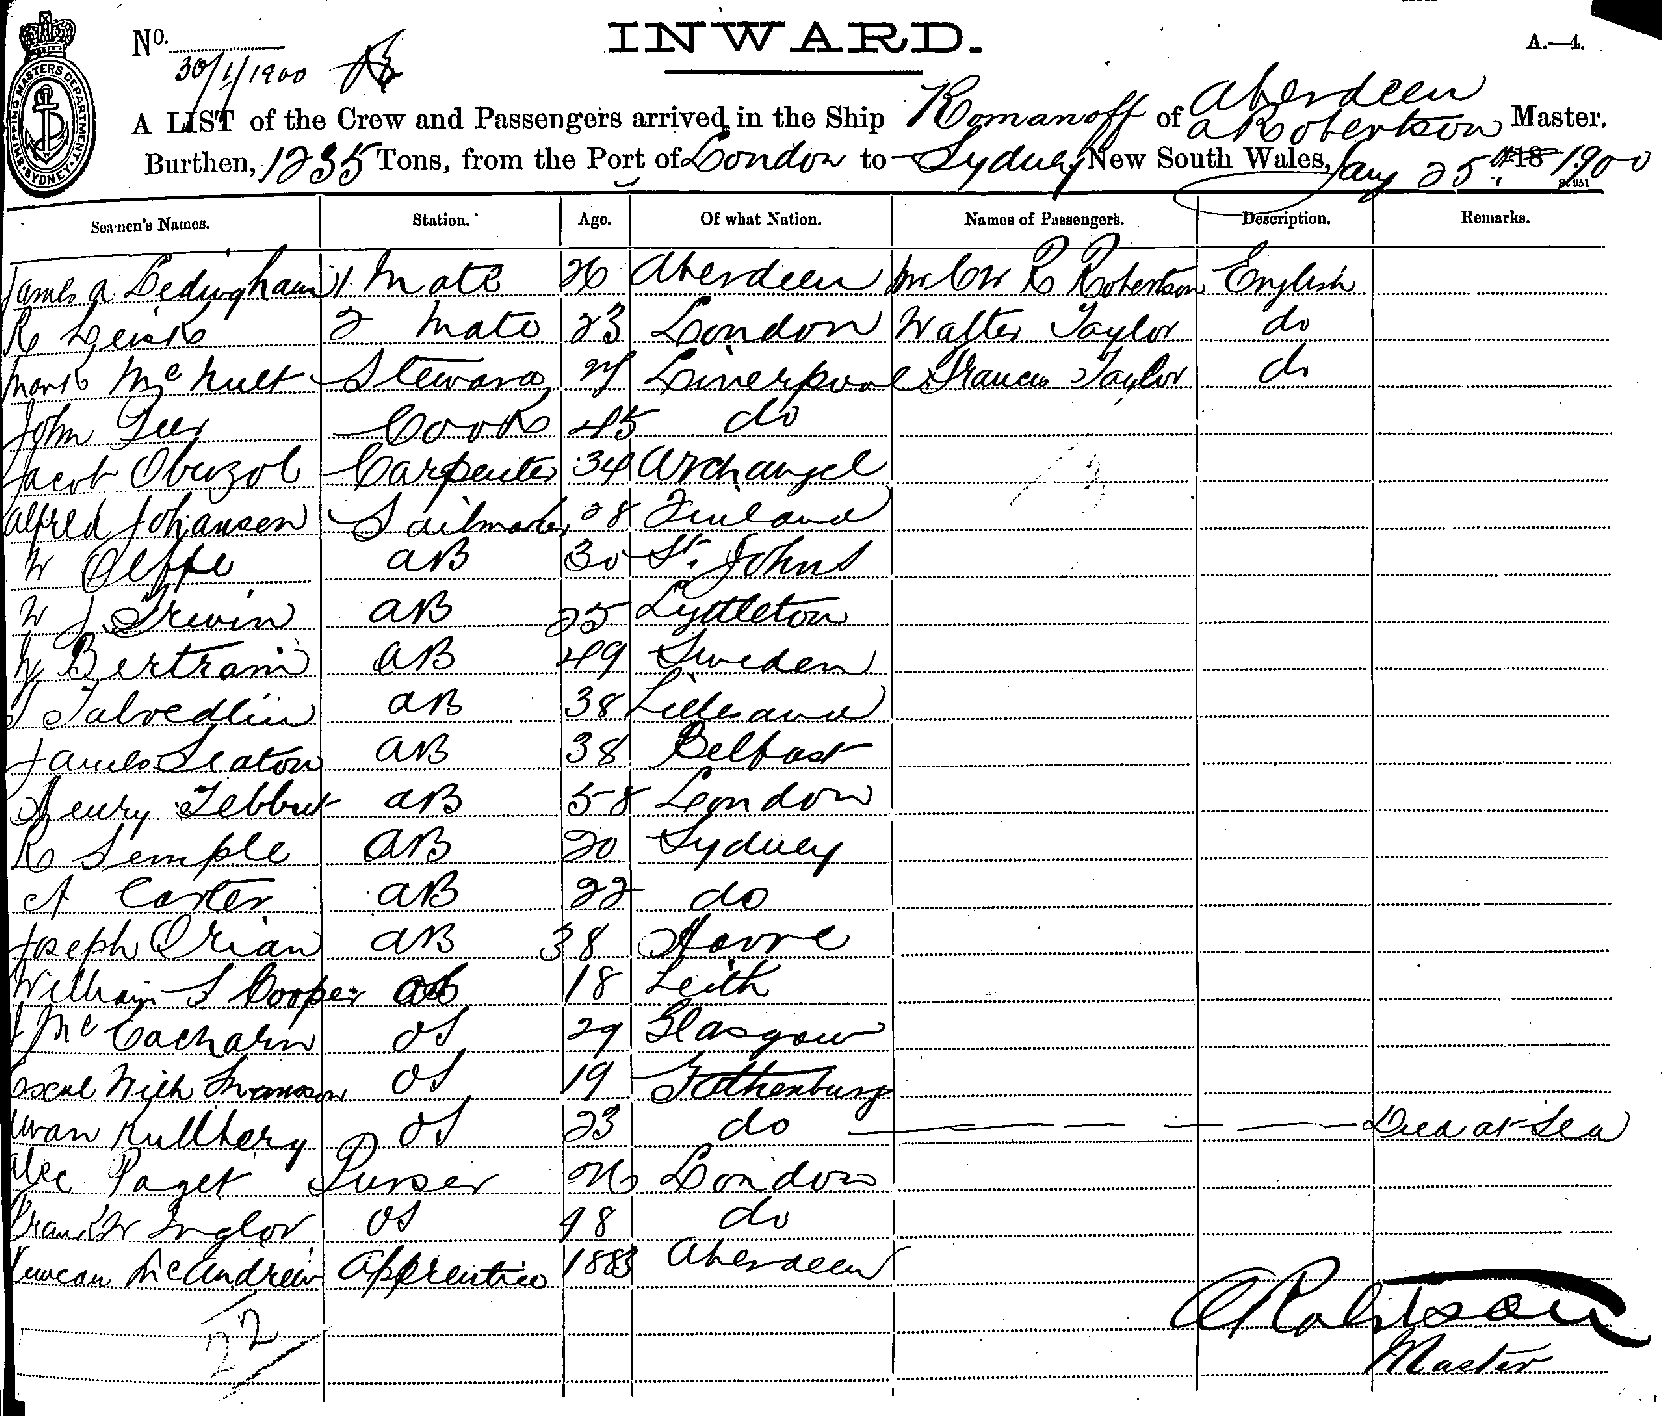 INWARD.
No.
A.—4.
30/1/1900
A LIST of the Crew and Passengers arrived in the Ship Romanoff of Aberdeen A Robertson Master.
Burthen, 1235 Tons, from the Port of London to Sydney New South Wales, Jany 25th 18 1900
SHIPPING MASTERS DEPARTMENT SYDNEY
Seamen's Names. Station. Age. Of what Nation. Names of Passengers. Description. Remarks.
James A Ledingham 1 Mate 26 Aberdeen Mr Robertson English
R Leisk 2 Mate 23 London Walter Taylor do
McNult Steward 27 Liverpool Francis Taylor do
John Cook 45 do
Jacob Obuzol Carpenter 34 Archangel
Alfred Johansen Sailmaker 28 Finland
W AB 30 St. Johns
W J Irwin AB 25 Lyttleton
W Bertram AB 49 Sweden
AB 38 Lillesand
James Seaton AB 38 Belfast
Henry Tebbut AB 58 London
R Semple AB 20 Sydney
A Carter AB 22 do
Joseph Orian AB 38 Havre
William S Cooper 18 Leith
J McEacharn OS 29 Glasgow
Oscal With Swanson OS 19 Gothenburg
Iwan Kullberg OS 23 do Died at Sea
Alec Paget Purser 26 London
Frank W Inglor OS 18 do
Duncan McAndrew Apprentice 1883 Aberdeen
22
A Robertson
Master